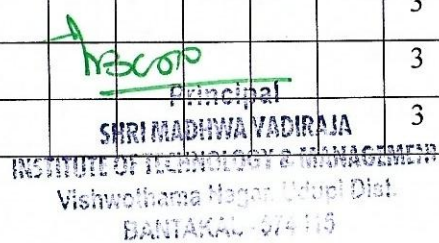 3
3
Principal
3
SHRI MADHWA VADIRAJA
INSTITUTE OF TECHNOLOGY & MANAGEMENT
Vishwothama Nagar, Udupi Dist.
BANTAKAL - 574 115